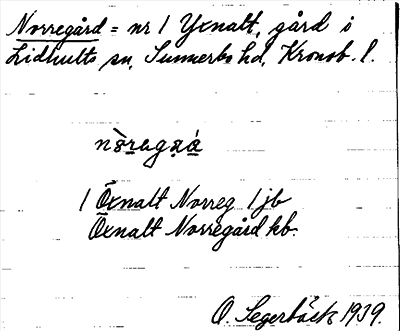 Norregård = nr 1 Yxnalt, gård i
Lidhults sn, Sunnerbo hd, Kronob. l.
nòregaá
1 Öxnalt Norreg 1 jb
Öxnalt Norregård hb.
O. Segerbäck 1939.